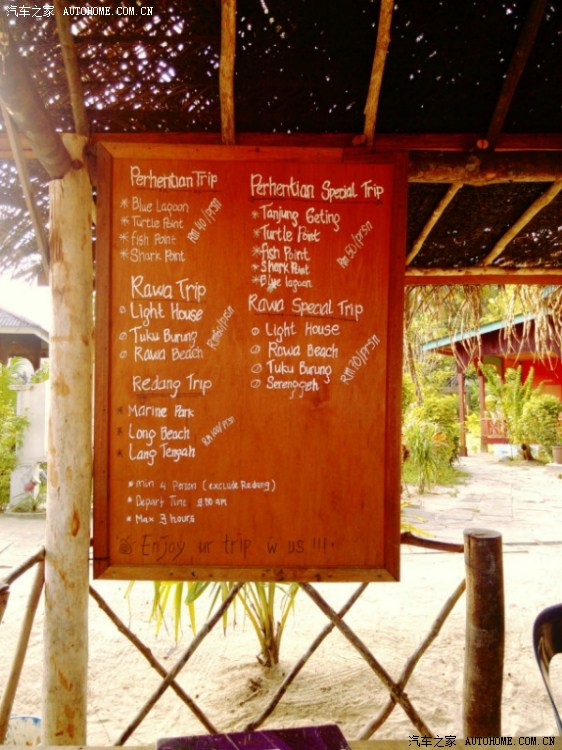 汽车之家 AUTOHOME.COM.CN
汽车之家 AUTOHOME.COM.CN
Perhentian Trip
* Blue Lagoon
* Turtle Point
* fish Point
* Shark Point
RM 40/prsn
Rawa Trip
Light House
Tuku Burung
Rawa Beach
/prsn
Redang Trip
* Marine Park
* Long Beach
* Lang Tengah
RM /prsn
* min 4 Person (exclude Redang)
* Depart Time am
* Max 3 hours
Perhentian Special Trip
* Tanjung Geting
* Turtle Point
* fish Point
* Shark Point
* Blue lagoon
RM 50/prsn
Rawa Special Trip
Light House
Rawa Beach
Tuku Burung
Serenggeh
RM 70/prsn
Enjoy ur trip w us !!!
汽车之家 AUTOHOME.COM.CN
汽车之家 AUTOHOME.COM.CN